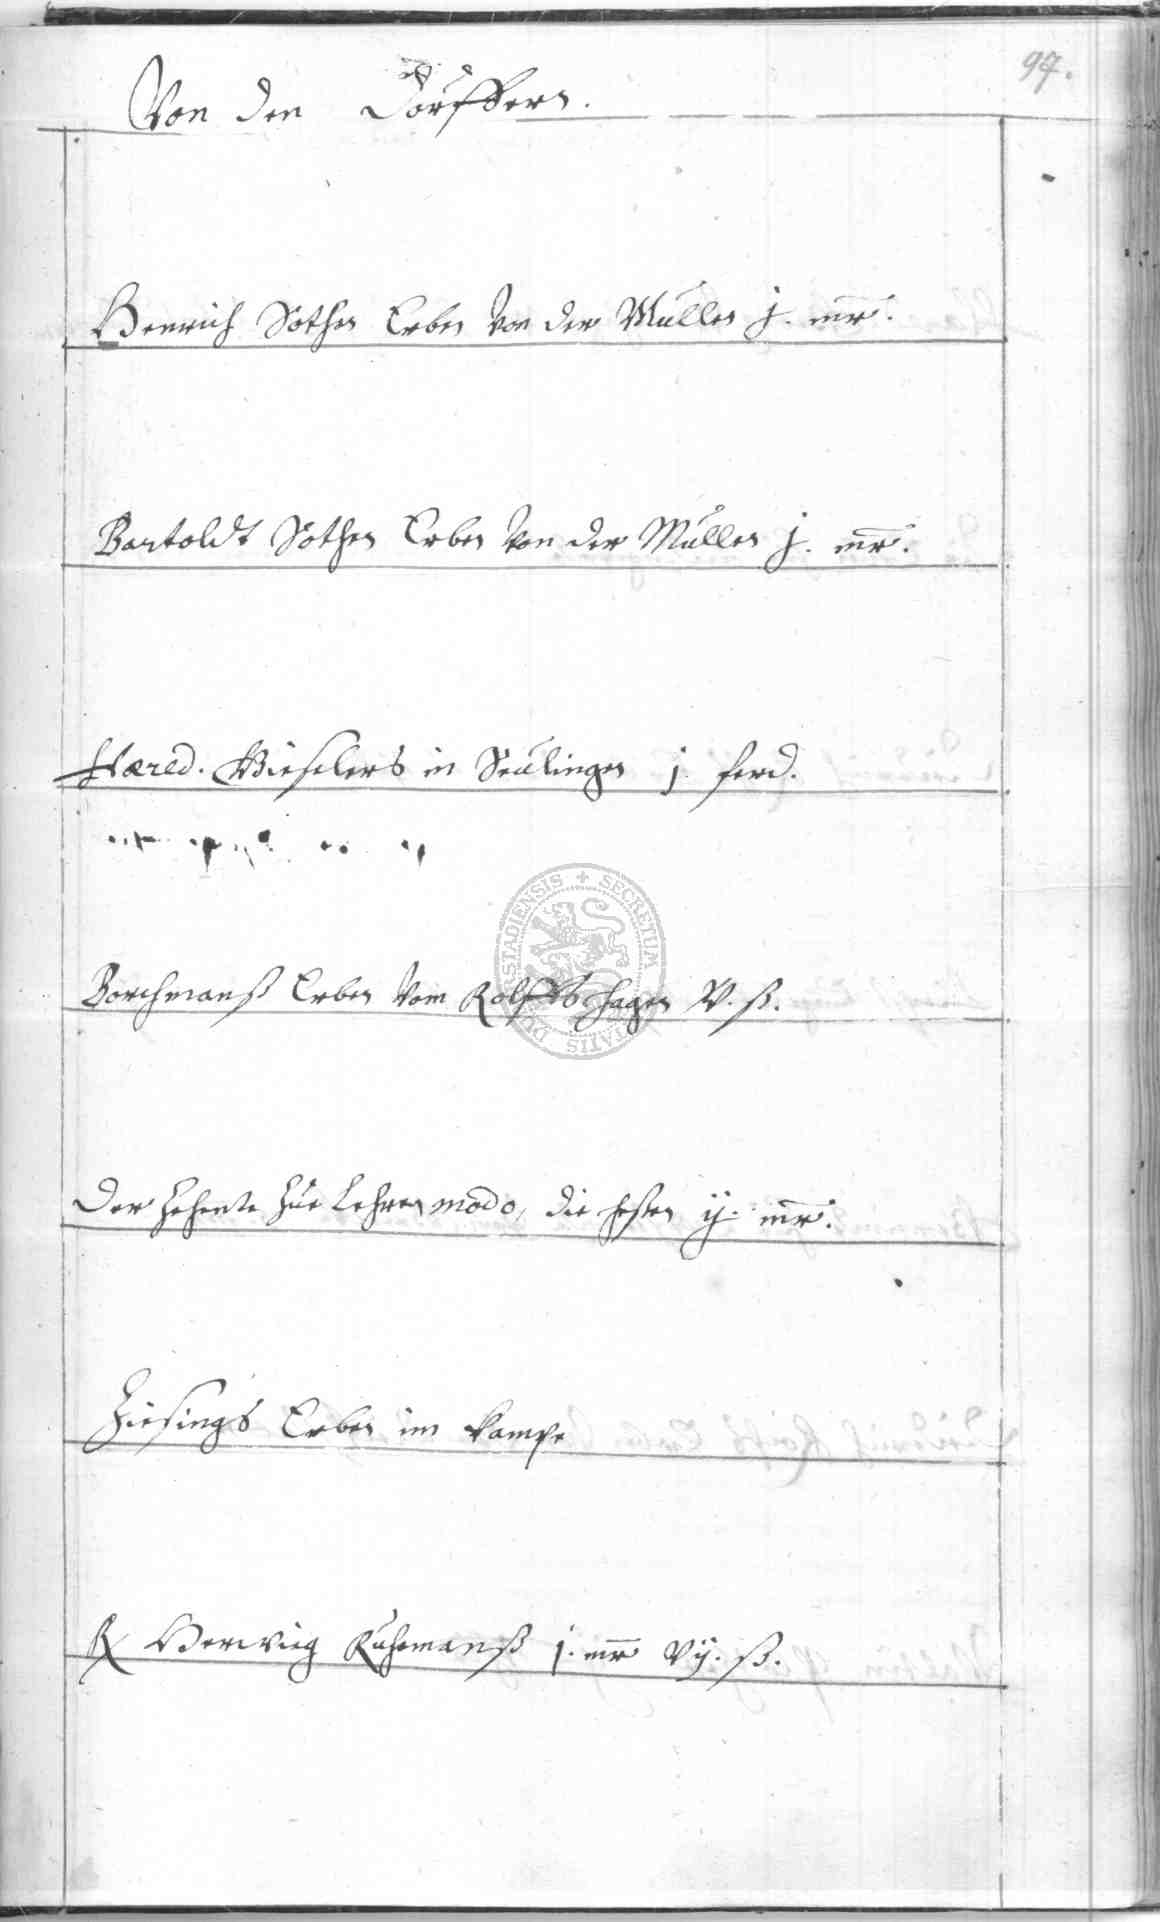 97.
Von den Dörffern.
Henrich Sothen Erben von der Müllen j. mr.
Bartoldt Sothen Erben von der Müllen j. mr.
Hæred. Gieselers in Seülingen j. ferd.
Borchmanß Erben vom Rolffshagen V. ß.
Der Zehente zue Lehren modo, die  ij. mr.
Ziesings Erben im Kampe
R Herwieg Kuhemanß j. mr Vij. ß.
DU STADIENSIS + SECRETUM TATIS